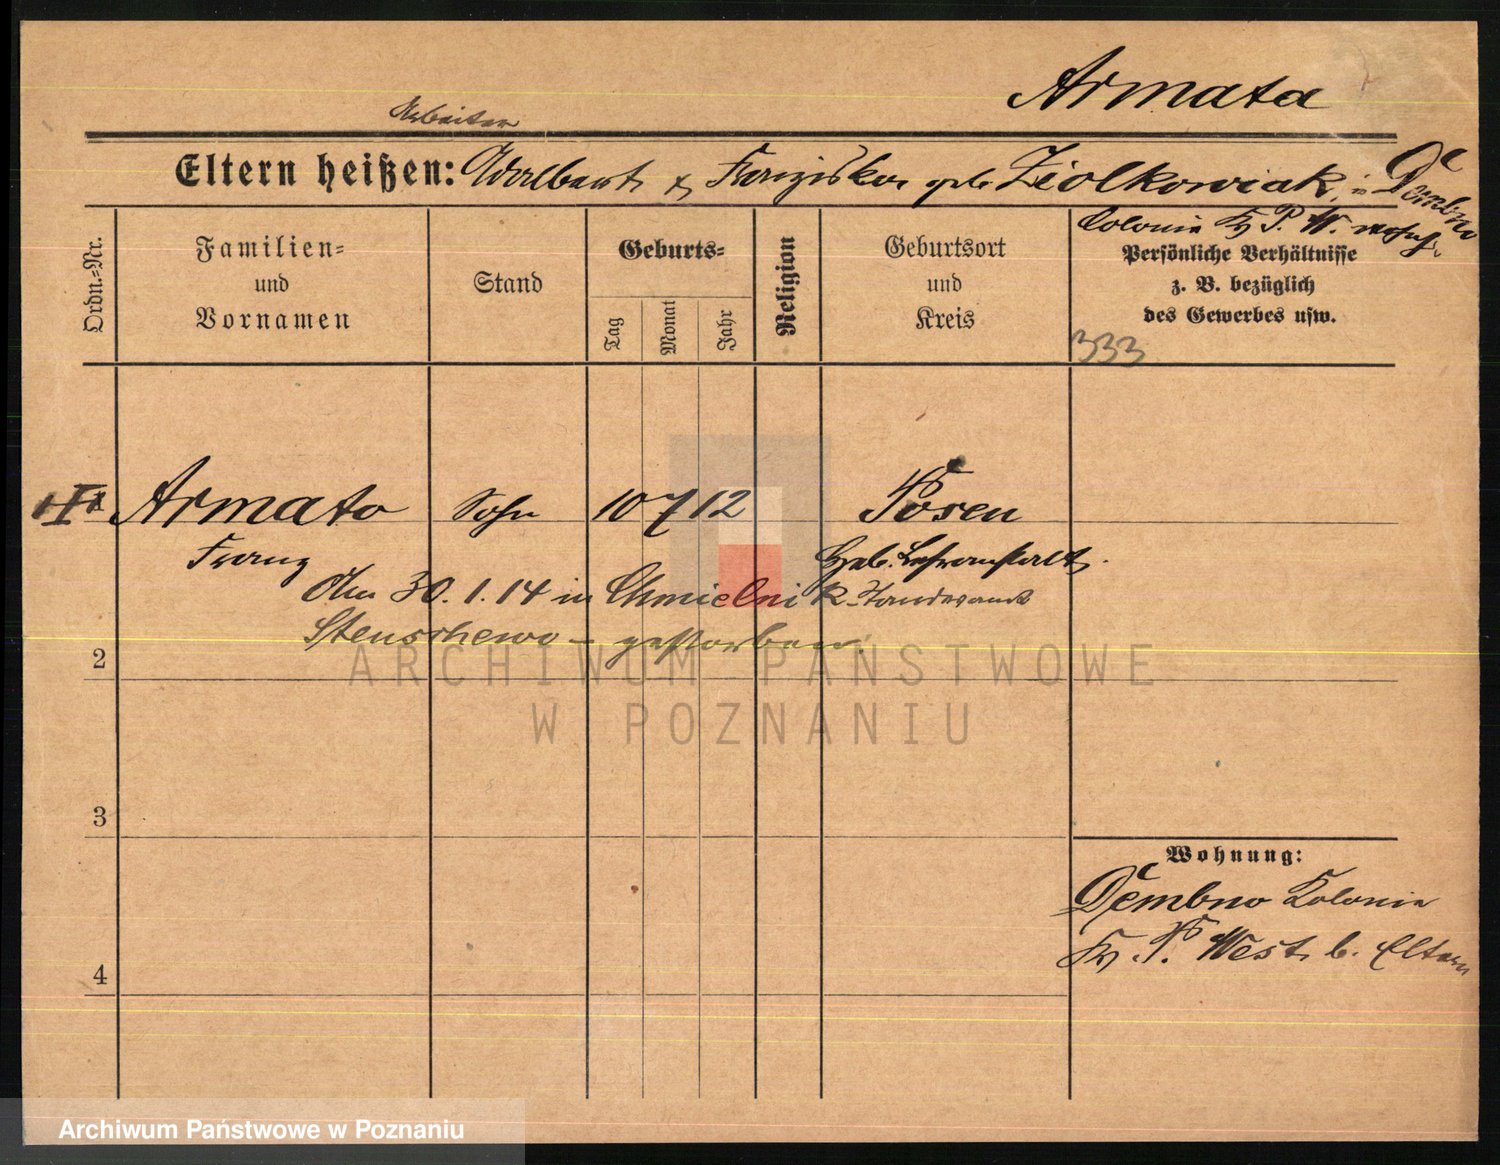 Armata
Arbeiter
Eltern heißen: Adalbert & Franziska geb. Ziolkowiak, in Dembno
Colonie Kr P. W. wohnh.
Ordn.-Nr.
Familien- und Vornamen
Stand
Geburts-
Tag
Monat
Jahr
Religion
Geburtsort und Kreis
Persönliche Verhältnisse
z. B. bezüglich
des Gewerbes usw.
333
1 Armata Sohn 10 7 12 Posen
Franz Heb. Lehranstalt.
Am 30.1.14 in Chmielnik - Standesamt
Stenschewo - gestorben.
2
ARCHIWUM PAŃSTWOWE
W POZNANIU
3
Wohnung:
Dembno Kolonie
Kr. P. West b. Eltern
4
Archiwum Państwowe w Poznaniu